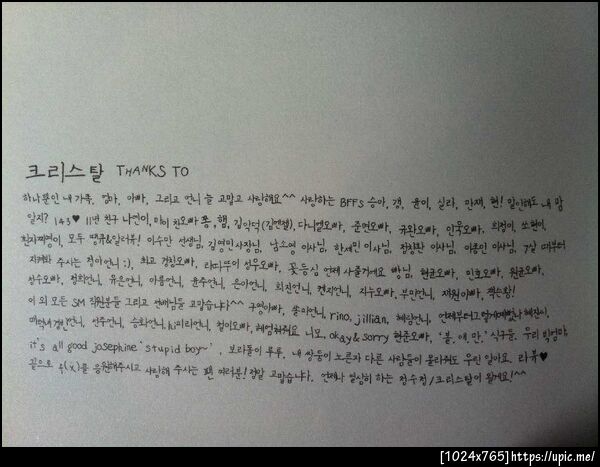 크리스탈 THANKS TO
하나뿐인 내 가족, 엄마, 아빠, 그리고 언니 늘 고맙고 사랑해요^^ 사랑하는 BFFS 승아, 갱, 윤이, 실라, 만재, 현! 말안해도 내 맘
알지? 143♥ 11번 친구 나연이, 찬오빠 종, 햄, 김익덕(김면접), 다니엘오빠, 준면오빠, 규환오빠, 민욱오빠, 희정이, 쏘현이,
모두 땡큐&알러뷰! 이수만 선생님, 김영민사장님, 남소영 이사님, 한세민 이사님, 정창환 이사님, 이용민 이사님, 7살 때부터
지켜봐 주시는 정아언니 :), 최고 경창오빠, 라따뚜이 성우오빠, 꽃등심 언제 사줄거에요 빵님, 현균오빠, 민호오빠, 원균오빠,
성수오빠, 정희언니, 유은언니, 아름언니, 윤주언니, 은아언니, 희진언니, 지수오빠, 부미언니, 재원아빠, 짹슨황!
이 외 모든 SM 직원분들 그리고 선배님들 고맙습니다^^ 구영아빠, 쏭미언니, rino, jillian, 혜림언니, 언제부터그렇게예뻤나 혜진이,
언니, 선주언니, 승화언니, hi미리언니, 철이오빠, 혜엄쳐줘요 니모, okay & sorry 현준오빠, '볼.애.만.' 식구들, 우리 빅엄마,
it's all good josephine 'stupid boy~', 보라돌이 루루, 내 쌍둥이 노른자 다른 사람들이 몰라줘도 우린 알아요, 라뷰♥
끝으로 f(x)를 응원해주시고 사랑해 주시는 팬 여러분! 정말 고맙습니다. 언제나 열심히 하는 정수정/크리스탈이 될게요!^^
[1024x765]https://upic.me/